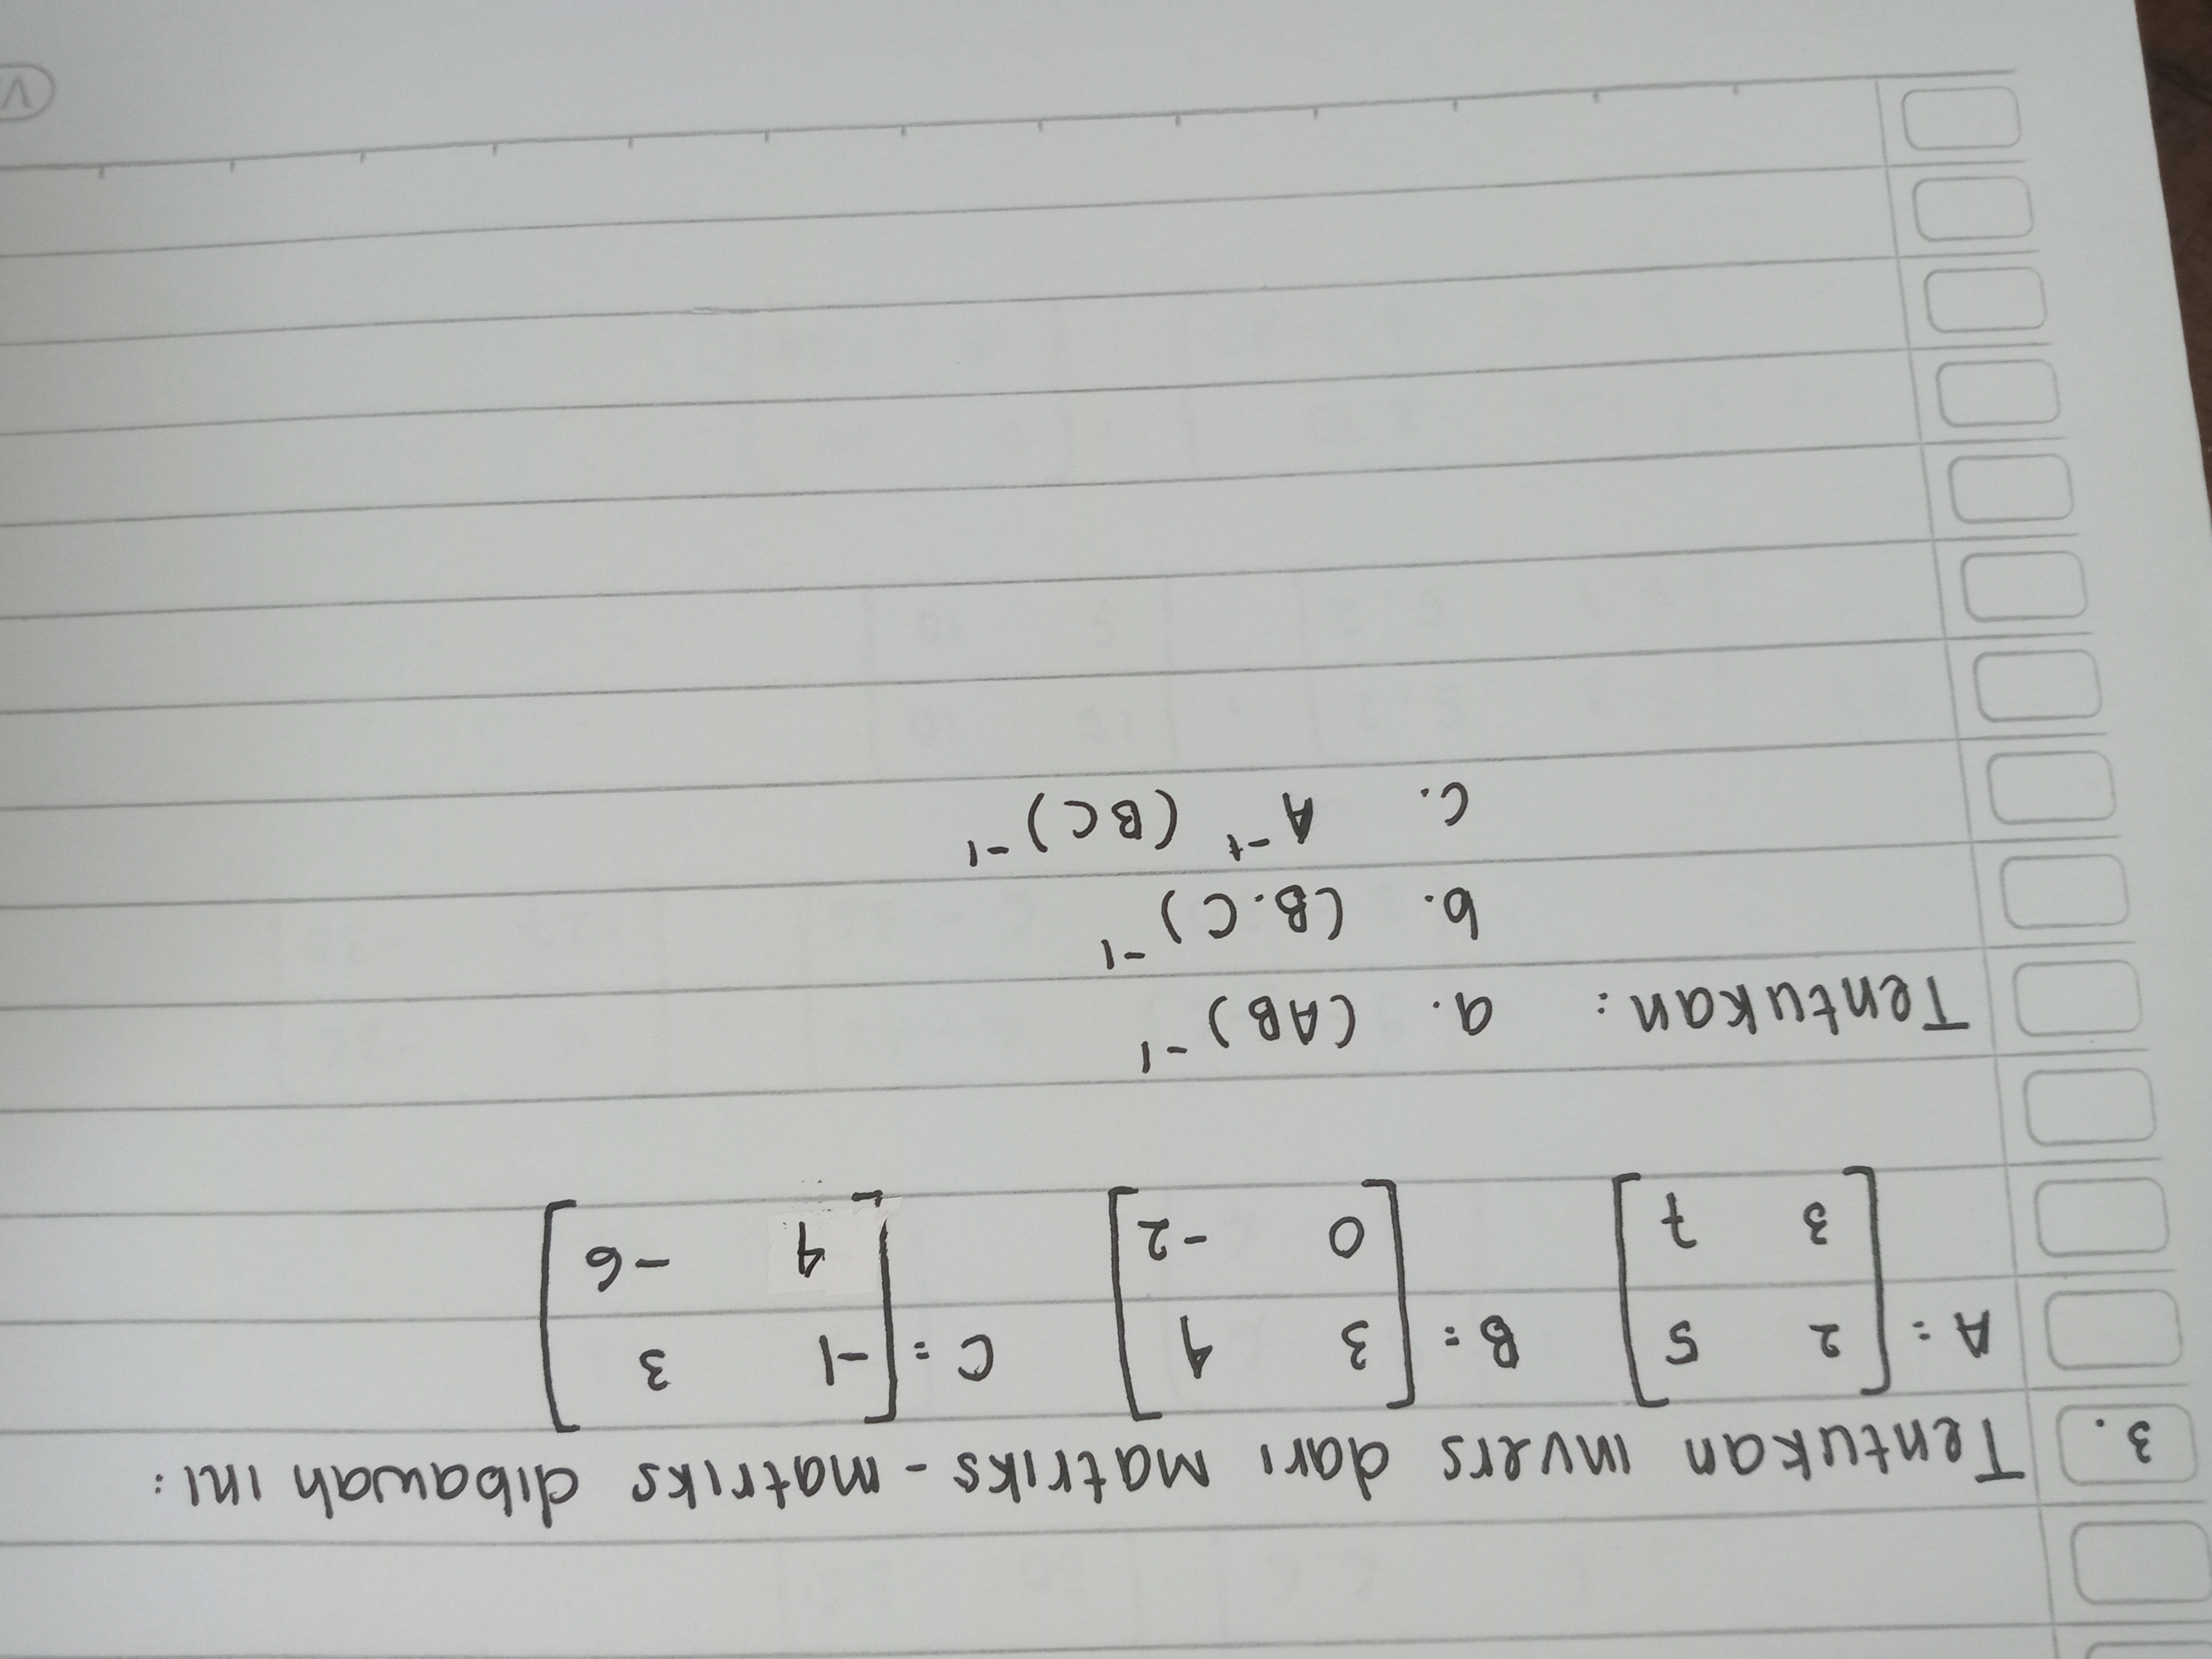 3. Tentukan invers dari matriks - matriks dibawah ini:
A = [2 5] B = [3 4] C = [-1 3]
[3 7] [0 -2] [4 -6]
Tentukan: a. (AB)⁻¹
b. (B.C)⁻¹
c. A⁻¹ (BC)⁻¹